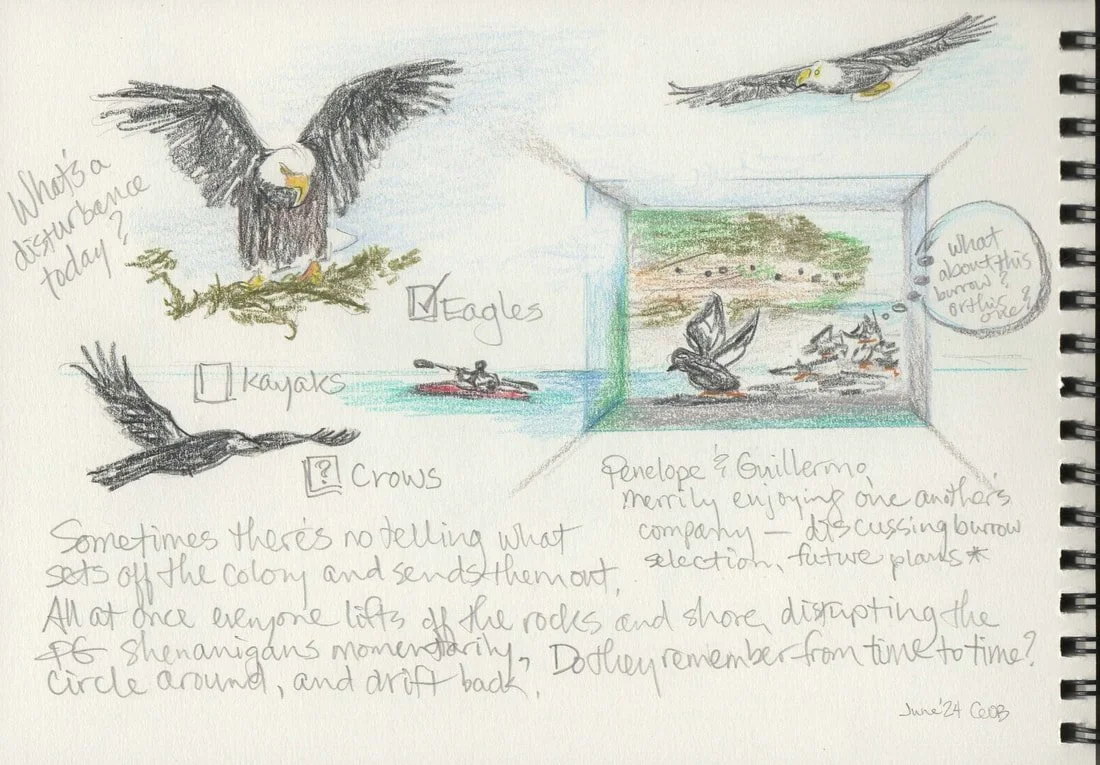 What's a
disturbance
today?
Eagles
Kayaks
? Crows
what
about this
burrow?
or this
one?
Penelope & Guillermo,
merrily enjoying one another's
company — discussing burrow
selection, future plans*
Sometimes there's no telling what
sets off the colony and sends them out.
All at once everyone lifts off the rocks and shore, disrupting the
PG shenanigans momentarily,
circle around, and drift back.
Do they remember from time to time?
June '24 CEOB